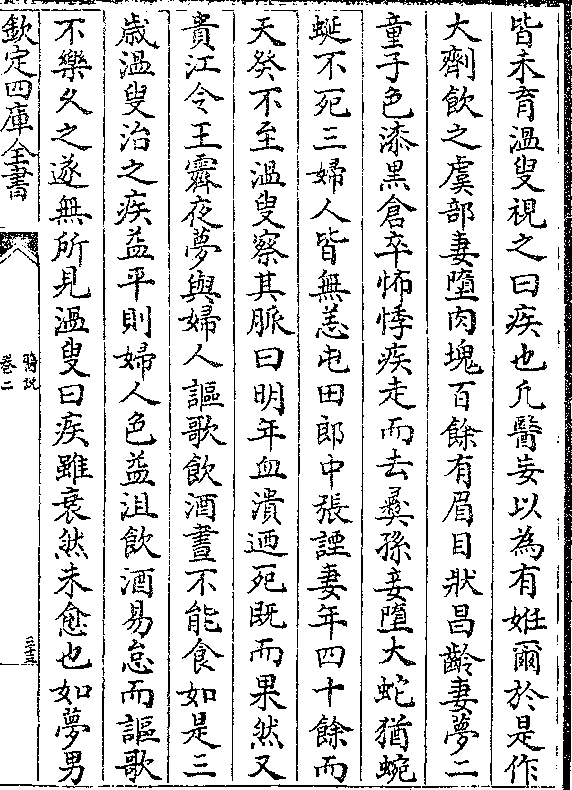 皆未育溫叟視之曰疾也凡醫妄以為有姙爾於是作
大劑飲之虞部妻墮肉塊百餘有眉目狀昌齡妻夢二
童子色漆黑倉卒怖悸疾走而去彛孫妾墮大蛇猶蜿
蜒不死三婦人皆無恙屯田郎中張諲妻年四十餘而
天癸不至溫叟察其脈曰明年血潰廼死既而果然又
貴江令王霽夜夢與婦人謳歌飲酒晝不能食如是三
歲溫叟治之疾益平則婦人色益沮飲酒易怠而謳歌
不樂久之遂無所見溫叟曰疾雖衰然未愈也如夢男
欽定四庫全書
醫説
卷二
三十三